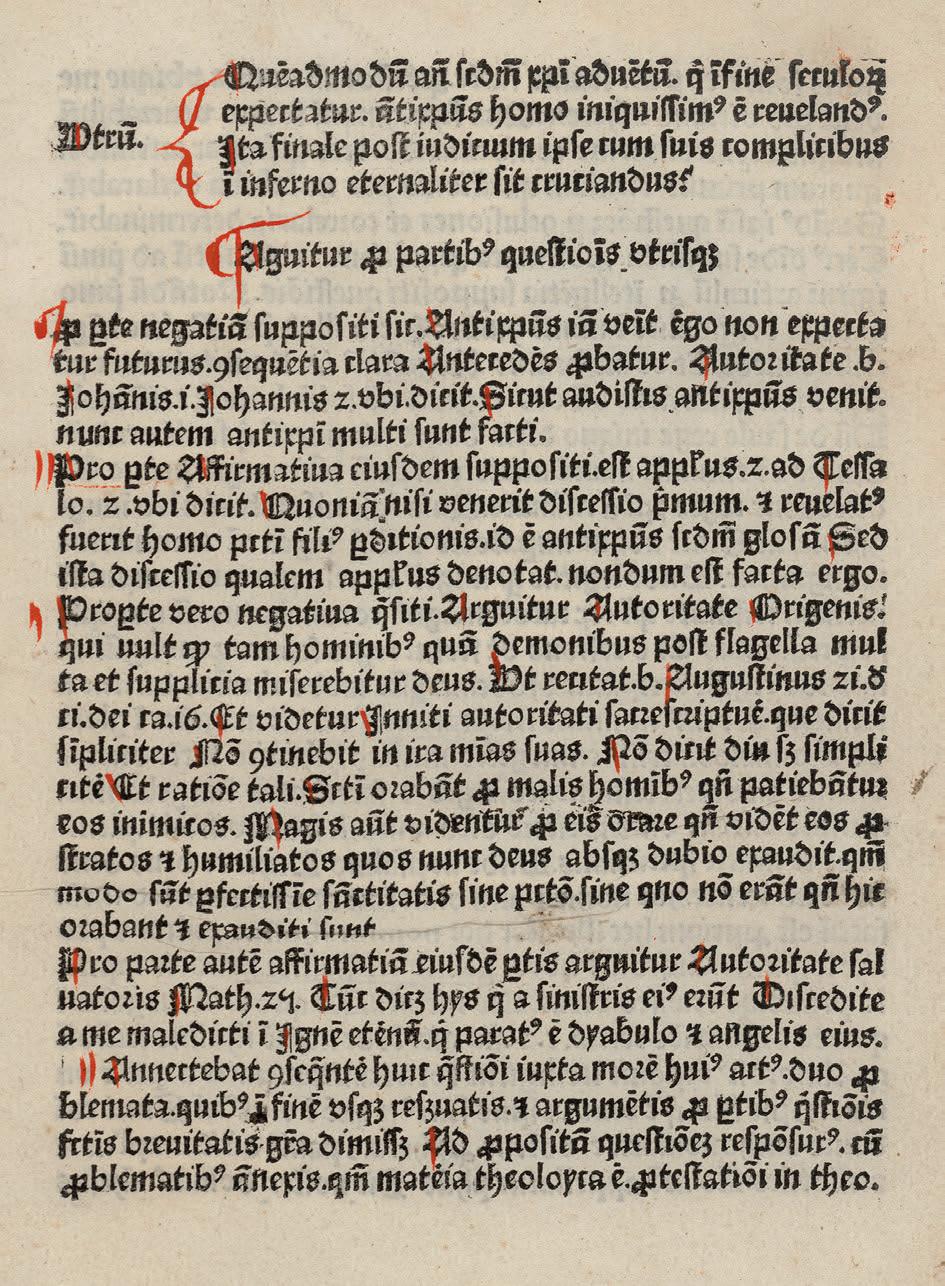 Quēadmodū añ scdm̄ xp̄i aduētū. q̇ ī fine seculoꝝ
expectatur. āntixpūs homo iniquissimꝰ ē reuelandꝰ.
Utrū.
Ita finale post iudicium ipse cum suis complicibus
ī inferno eternaliter sit cruciandus?
Arguitur ꝓ partibꝰ questiōis vtrisqꝫ
Pꝓ ꝑte negatiā suppositi sic. Antixpūs iā veīt ēgo non expecta
tur futurus. ꝯsequētia clara Antecedēs ꝓbatur. Autoritate .b.
Johānis.i. Johannis 2. vbi.dicit. Sicut audistis antixpūs venit.
nunc autem antixpī multi sunt facti.
Pro ꝑte Affirmatiua eiusdem suppositi.est appl̄us.2.ad Tessa
lo. 2 .vbi dicit. Quoniā nisi venerit discessio pͥmum. ⁊ reuelatꝰ
fuerit homo pctī filiꝰ ꝑditionis.id ē antixpūs scdm̄ glosā Sed
ista discessio qualem appl̄us denotat. nondum est facta ergo.
Proꝑte vero negatiua q̄siti. Arguitur Autoritate Origenis.
qui uult ꝙ tam hominibꝰ quā demonibus post flagella mul
ta et supplicia miserebitur deus. Ut recitat.b. Augustinus 21.d̄
ci.dei ca.16. Et videtur Inniti autoritati sacrescriptuē.que dicit
sīpliciter Nō ꝯtinebit in ira mīas suas. Nō dicit diu sꝫ simpli
citē Et ratiōe tali. Sctī orabāt ꝓ malis homībꝰ qn̄ patiebātur
eos inimicos. Magis aūt videntur ꝓ eis orare qn̄ vidēt eos ꝓ
stratos ⁊ humiliatos quos nunc deus absqꝫ dubio exaudit.qm̄
modo sūt ꝑfectissīe sāctitatis sine pctō.sine quo nō erāt qn̄ hic
orabant ⁊ exauditi sunt
Pro parte autē affirmatiā eiusdē ꝑtis arguitur Autoritate sal
uatoris Math.25. Tūc dicꝫ hys q̇ a sinistris eiꝰ erūt Discedite
a me maledicti ī Ignē etēnū.q̇ paratꝰ ē dyabulo ⁊ angelis eius.
Annectebat ꝯseq̄ntē huic q̄stiōi iuxta morē huiꝰ actꝰ.duo ꝓ
blemata.quibꝰ ī finē vsqꝫ resꝫuatis.⁊ argumētis ꝓ ꝑtibꝰ q̄stiōis
fctīs breuitatis gēa dimissꝫ Ad ꝓpositā questiōeꝫ respōsurꝰ. cū
ꝓblematibꝰ ānexis.qm̄ matēia theoloyca ē. ꝓtestatiōi in theo.